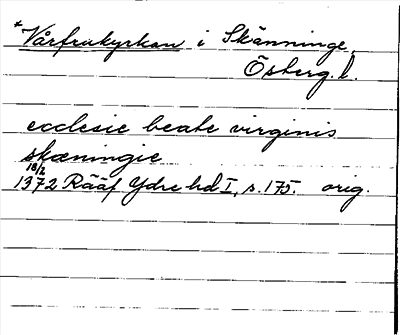 *Vårfrukyrkan i Skänninge,
Östberg. l.
ecclesie beate virginis
skæningie
18/2
1372 Rääf Ydre hd I, s. 175. orig.